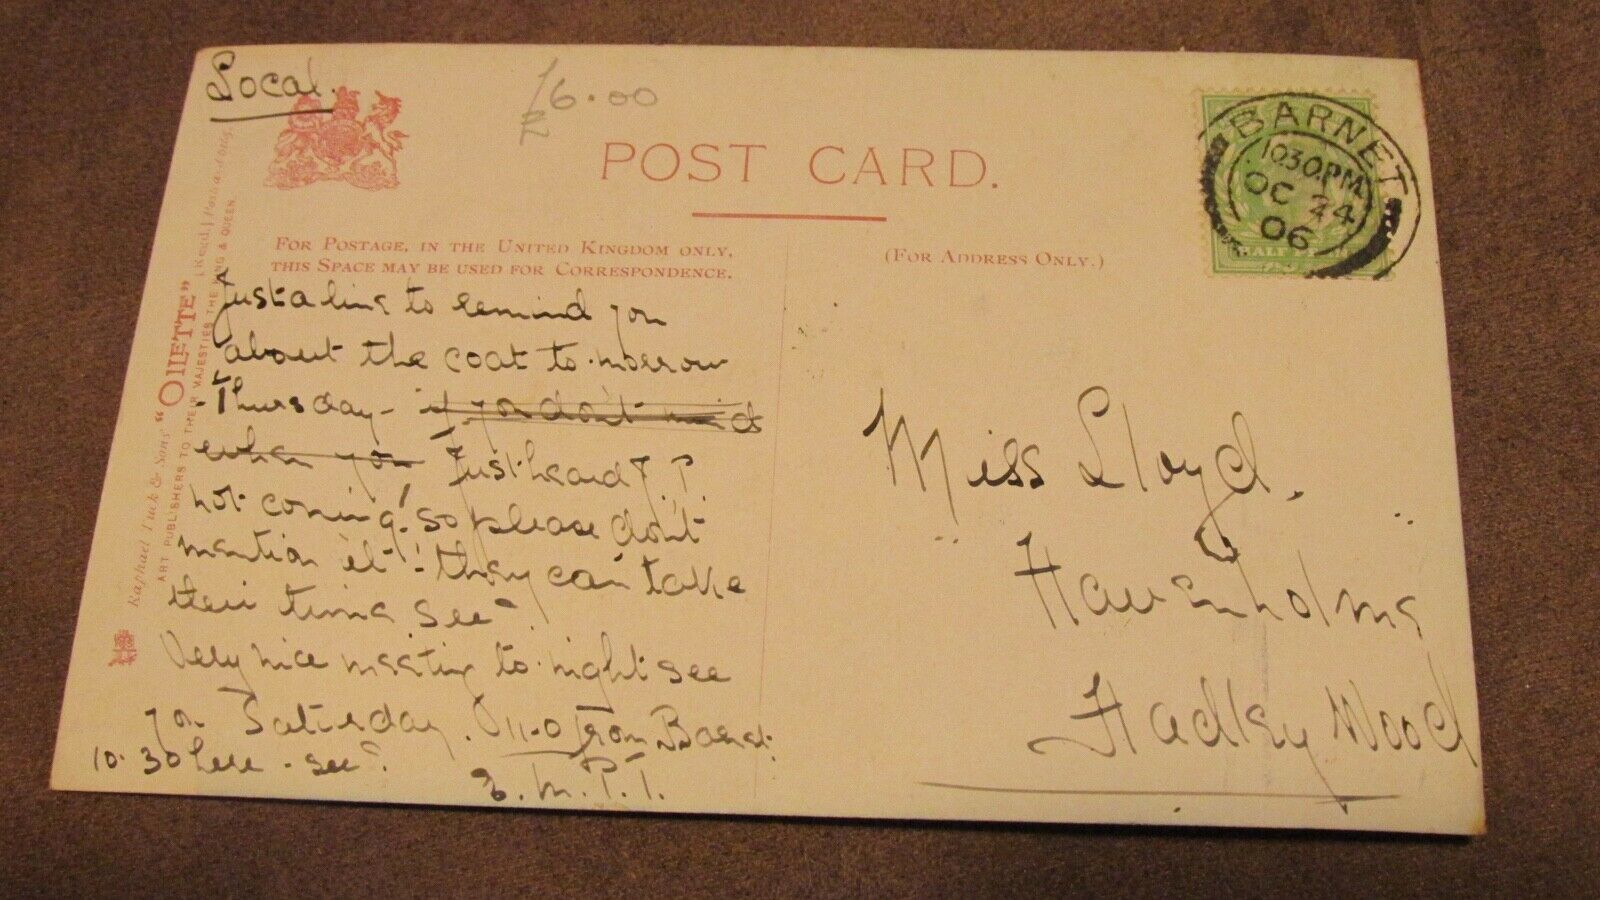 Local.
£6.00
POST CARD.
FOR POSTAGE, IN THE UNITED KINGDOM ONLY,
THIS SPACE MAY BE USED FOR CORRESPONDENCE.
(FOR ADDRESS ONLY.)
BARNET
10.30.PM
OC 24
06
HALF
Raphael Tuck & Sons' "OILETTE" [Regd.]
ART PUBLISHERS TO THEIR MAJESTIES THE KING & QUEEN.
Just a line to remind you
about the coat to-morrow
- Thursday - if you don't
when you Just heard J. P.
not coming! so please don't
mention it - they can take
their time see?
Very nice meeting to-night see
you Saturday. 11.0 from Barnet
10.30 here - see?
M. P. T.
Miss Lloyd.
Havenholme
Hadley Wood